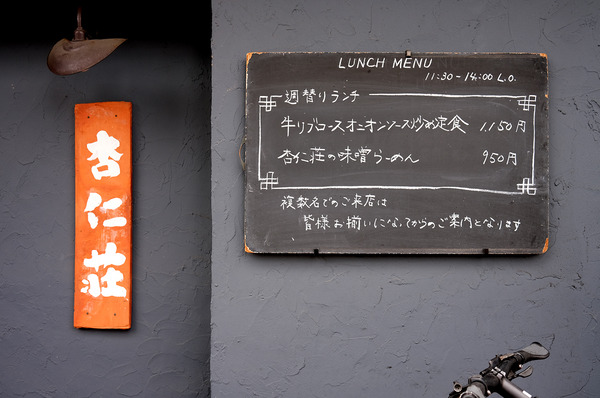 杏仁荘
LUNCH MENU
11:30-14:00 L.O.
週替りランチ
牛リブロースオニオンソース炒め定食 1.150円
杏仁荘の味噌らーめん 950円
複数名でのご来店は
皆様お揃いになってからのご案内となります